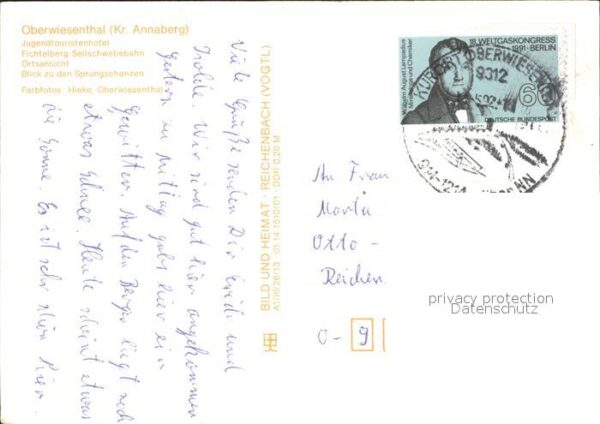 Oberwiesenthal (Kr. Annaberg)
Jugendtouristenhotel
Fichtelberg-Seilschwebebahn
Ortsansicht
Blick zu den Sprungschanzen
Farbfotos Hieke, Oberwiesenthal
Viele Grüße senden Dir und
Wir sind gut hier angekommen
Gestern zu Mittag gab's hier ein
Gewitter. Auf den Bergen liegt noch
etwas Schnee. Heute scheint etwas
die Sonne. Es ist sehr schön hier.
BILD UND HEIMAT · REICHENBACH (VOGTL)
A1/III/26/13 01 14 1510/01 · DDR 0,20 M
18. WELTGASKONGRESS
1991 · BERLIN
Wilhelm August Lampadius
Metallurge und Chemiker
60
DEUTSCHE BUNDESPOST
KURORT OBERWIESENTHAL
9312
An Frau
Marta
Otto-
Reichen
O- 9
privacy protection
Datenschutz